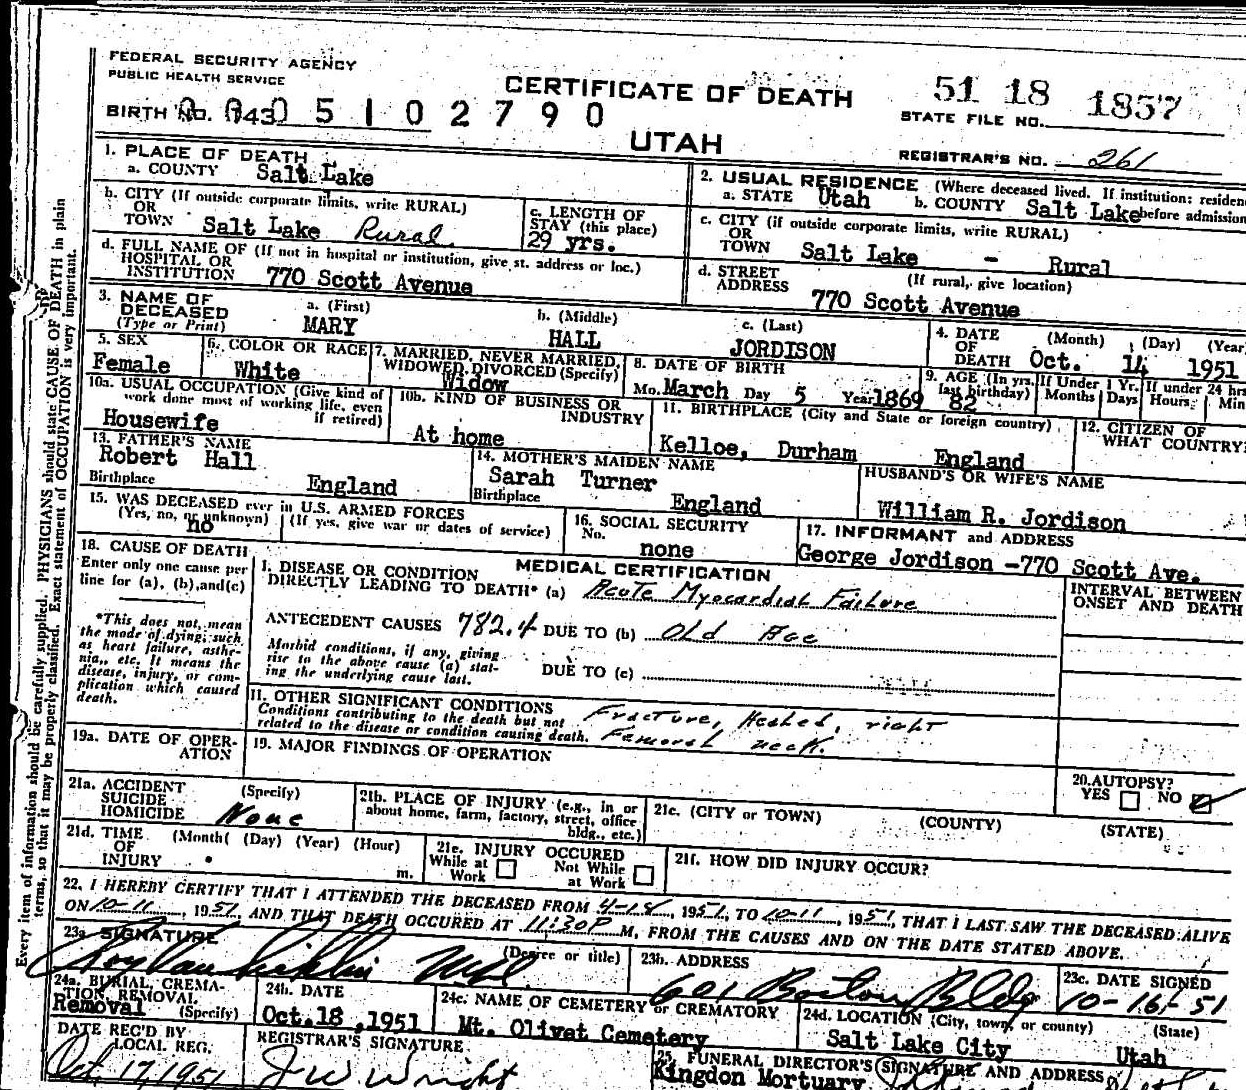 FEDERAL SECURITY AGENCY
PUBLIC HEALTH SERVICE
CERTIFICATE OF DEATH
51 18 1857
STATE FILE NO.
BIRTH No. 5 1 0 2 7 9 0
UTAH
REGISTRAR'S NO. 261
1. PLACE OF DEATH
a. COUNTY Salt Lake
2. USUAL RESIDENCE (Where deceased lived. If institution: residen
a. STATE Utah b. COUNTY Salt Lake before admission
b. CITY (If outside corporate limits, write RURAL)
OR
TOWN Salt Lake Rural
c. LENGTH OF
STAY (this place)
29 yrs.
c. CITY (if outside corporate limits, write RURAL)
OR
TOWN Salt Lake - Rural
d. FULL NAME OF (If not in hospital or institution, give st. address or loc.)
HOSPITAL OR
INSTITUTION 770 Scott Avenue
d. STREET (If rural, give location)
ADDRESS
770 Scott Avenue
3. NAME OF
DECEASED
(Type or Print)
a. (First)
MARY
b. (Middle)
HALL
c. (Last)
JORDISON
4. DATE (Month) (Day) (Year
OF
DEATH Oct. 14 1951
5. SEX
Female
6. COLOR OR RACE
White
7. MARRIED, NEVER MARRIED,
WIDOWED, DIVORCED (Specify)
Widow
8. DATE OF BIRTH
Mo. March Day 5 Year 1869
9. AGE (In yrs.
last birthday)
82
If Under 1 Yr.
Months Days
If under 24 hrs
Hours Min
10a. USUAL OCCUPATION (Give kind of
work done most of working life, even
if retired)
Housewife
10b. KIND OF BUSINESS OR
INDUSTRY
At home
11. BIRTHPLACE (City and State or foreign country)
Kelloe, Durham England
12. CITIZEN OF
WHAT COUNTRY?
13. FATHER'S NAME
Robert Hall
Birthplace England
14. MOTHER'S MAIDEN NAME
Sarah Turner
Birthplace England
HUSBAND'S OR WIFE'S NAME
William R. Jordison
15. WAS DECEASED ever in U.S. ARMED FORCES
(Yes, no, or unknown) (If yes, give war or dates of service)
no
16. SOCIAL SECURITY
No.
none
17. INFORMANT and ADDRESS
George Jordison -770 Scott Ave.
18. CAUSE OF DEATH
Enter only one cause per
line for (a), (b), and (c)
*This does not mean
the mode of dying, such
as heart failure, asthe-
nia, etc. It means the
disease, injury, or com-
plication which caused
death.
MEDICAL CERTIFICATION
I. DISEASE OR CONDITION
DIRECTLY LEADING TO DEATH* (a) Acute Myocardial Failure
ANTECEDENT CAUSES 782.4 DUE TO (b) Old Age
Morbid conditions, if any, giving
rise to the above cause (a) stat-
ing the underlying cause last.
DUE TO (c)
INTERVAL BETWEEN
ONSET AND DEATH
11. OTHER SIGNIFICANT CONDITIONS
Conditions contributing to the death but not
related to the disease or condition causing death.
Fracture, Healed, right
Femoral neck.
19a. DATE OF OPER-
ATION
19. MAJOR FINDINGS OF OPERATION
20. AUTOPSY?
YES NO
21a. ACCIDENT (Specify)
SUICIDE
HOMICIDE None
21b. PLACE OF INJURY (e.g., in or
about home, farm, factory, street, office
bldg., etc.)
21c. (CITY or TOWN) (COUNTY) (STATE)
21d. TIME (Month) (Day) (Year) (Hour)
OF
INJURY m.
21e. INJURY OCCURED
While at Work Not While at Work
21f. HOW DID INJURY OCCUR?
22. I HEREBY CERTIFY THAT I ATTENDED THE DECEASED FROM 4-18, 1951, TO 10-11, 1951, THAT I LAST SAW THE DECEASED ALIVE
ON 10-11, 1951, AND THAT DEATH OCCURED AT 11:30P M, FROM THE CAUSES AND ON THE DATE STATED ABOVE.
23a. SIGNATURE (Degree or title)
23b. ADDRESS
601 Boston Bldg
23c. DATE SIGNED
10-16-51
24a. BURIAL, CREMA-
TION, REMOVAL
Removal (Specify)
24b. DATE
Oct.18,1951
24c. NAME OF CEMETERY or CREMATORY
Mt. Olivet Cemetery
24d. LOCATION (City, town, or county) (State)
Salt Lake City Utah
DATE REC'D BY
LOCAL REG.
Oct. 17, 1951
REGISTRAR'S SIGNATURE
J W Wright
25. FUNERAL DIRECTOR'S SIGNATURE AND ADDRESS
Kingdon Mortuary
Every item of information should be carefully supplied. PHYSICIANS should state CAUSE OF DEATH in plain
terms, so that it may be properly classified. Exact statement of OCCUPATION is very important.